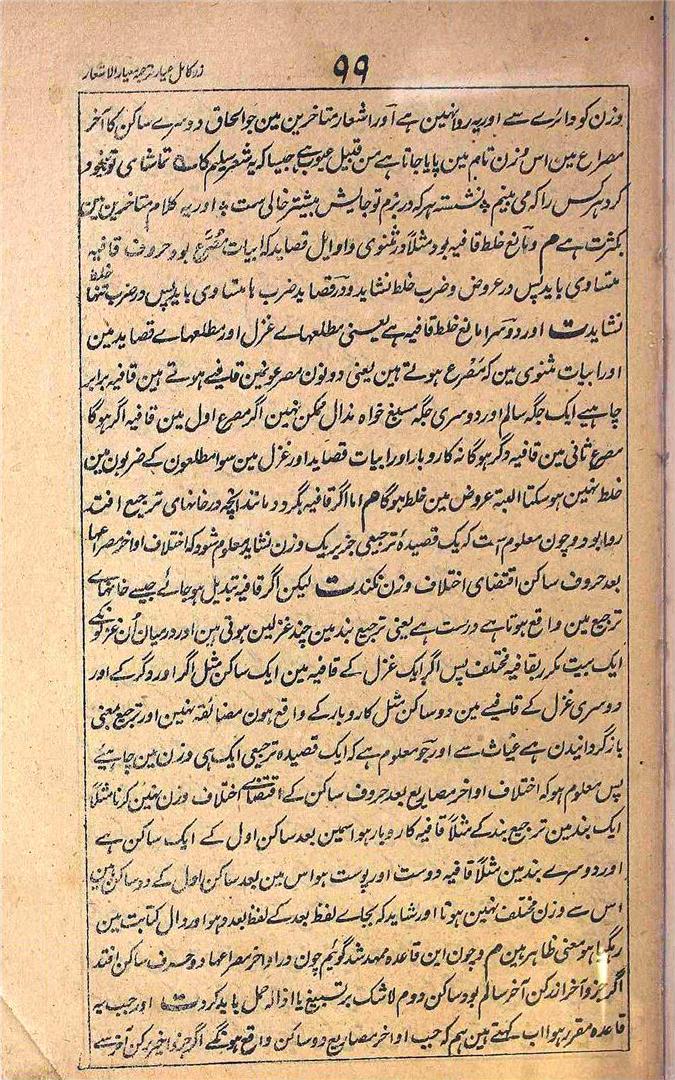 زر کامل عیار ترجمہ معیار الاشعار
۹۹
وزن کو دائرے سے اور یہ روا نہین ہے اور اشعار متاخرین مین جو الحاق دوسرے ساکن کا آخر
مصراع مین اس وزن تام مین پایا جاتا ہے من قبیل عیوب ہے جیسا کہ یہ شعر سلیم کا تماشای تو بیخود
کرد ہر کس را کہ می بینم نشستہ ہر کہ در بزم تو جایش بیشتر خالی ست اور یہ کلام متاخرین مین
بکثرت ہے م و مانع خلط قافیہ بود مثلاً در مثنوی و اوایل قصاید کہ ابیات مصرع بود حروف قافیہ
متساوی باید پس در عروض و ضرب خلط نشاید و در قصاید ضرب ہا متساوی باید پس در ضرب تنہا خلط
نشاید ت اور دوسرا مانع خلط قافیہ ہے یعنی مطلعہاے غزل اور مطلعہاے قصاید مین
اور ابیات مثنوی مین کہ مصرع ہوتے ہین یعنی دونون مصرعونمین قافیے ہوتے ہین قافیہ برابر
چاہیے ایک جگہ سالم اور دوسری جگہ مسبغ خواہ مذال ممکن نہین اگر مصرع اول مین قافیہ اگر ہوگا
مصرع ثانی مین قافیہ دگر ہوگا نہ کاروبار اور ابیات قصاید اور غزل مین سوا مطلعون کے ضربون مین
خلط نہین ہو سکتا البتہ عروض مین خلط ہوگا م اما اگر قافیہ بگردد مانند آنچہ در خانہای ترجیع افتد
روا بود و چون معلوم است کہ یک قصیدۂ ترجیعی جز بر یک وزن نشاید معلوم شود کہ اختلاف اواخر مصراعہا
بعد حروف ساکن اقتضای اختلاف وزن نکند ت لیکن اگر قافیہ تبدیل ہو جائے جیسے خانہای
ترجیع مین واقع ہوتا ہے درست ہے یعنی ترجیع بند مین چند غزلین ہوتی ہین اور درمیان اُن غزلونکے
ایک بیت مکرر بقافیہ مختلف پس اگر ایک غزل کے قافیہ مین ایک ساکن مثل اگر اور دگر کے اور
دوسری غزل کے قافیے مین دو ساکن مثل کاروبار کے واقع ہون مضائقہ نہین اور ترجیع بمعنی
باز گردانیدن ہے غیاث سے اور جو معلوم ہے کہ ایک قصیدہ ترجیعی ایک ہی وزن مین چاہیے
پس معلوم ہو کہ اختلاف اواخر مصاریع بعد حروف ساکن کے اقتضاے اختلاف وزن نہین کرتا مثلاً
ایک بند مین ترجیع بند کے مثلاً قافیہ کاروبار ہوا سمین بعد ساکن اول کے ایک ساکن ہے
اور دوسرے بند مین مثلاً قافیہ دوست اور پوست ہو اس مین بعد ساکن اول کے دو ساکن ہین
اس سے وزن مختلف نہین ہوتا اور شاید کہ بجاے لفظ بعد کے لفظ بعد و ہو اور دال کتابت مین
رہگیا ہو معنی ظاہر ہین م و چون این قاعدہ ممہد شد گوئیم چون در اواخر مصراعہا دو حرف ساکن افتد
اگر جزو آخر از رکن آخر سالم بود ساکن دوم لاشک بر تسبیغ یا اذالہ حمل باید کرد ت اور جب یہ
قاعدہ مقرر ہوا اب کہتے ہین ہم کہ جب اواخر مصاریع دو ساکن واقع ہونگے اگر جزو اخیر رکن آخر سے